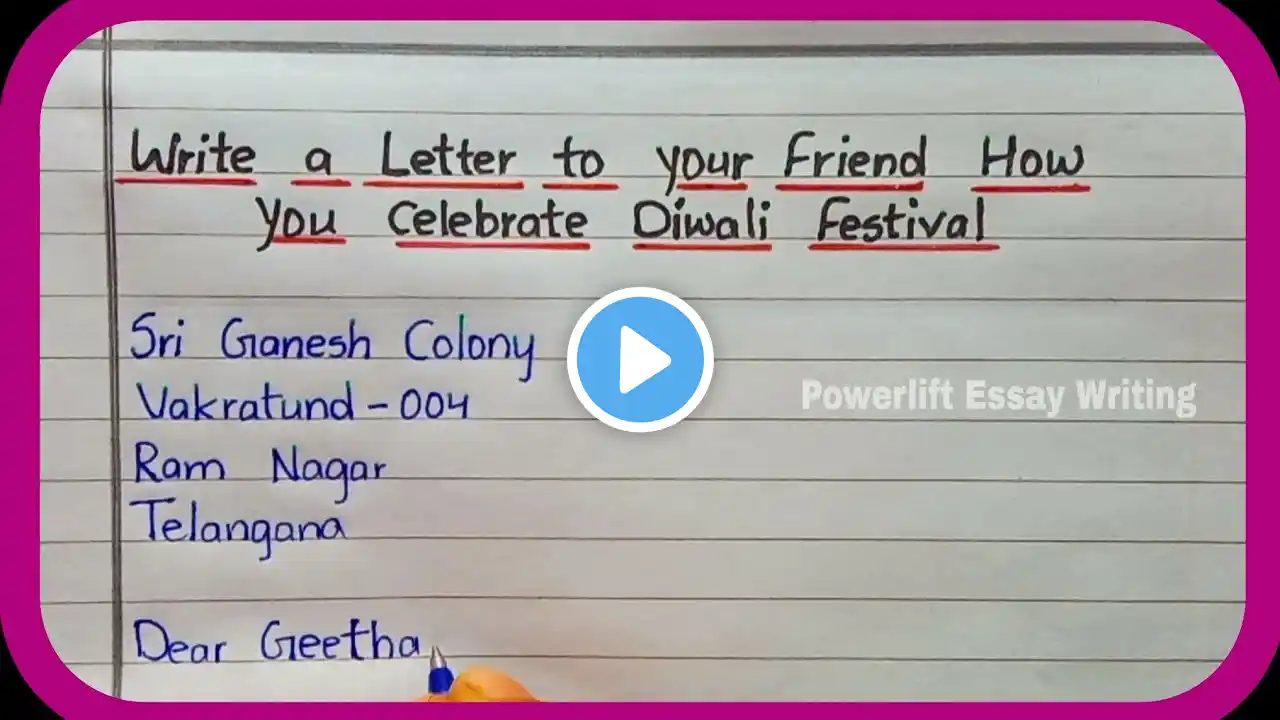 Write a Letter to your Friend How
You Celebrate Diwali Festival
Sri Ganesh Colony
Powerlift Essay Writing
Vakratund - 004
Ram Nagar
Telangana
Dear Geetha